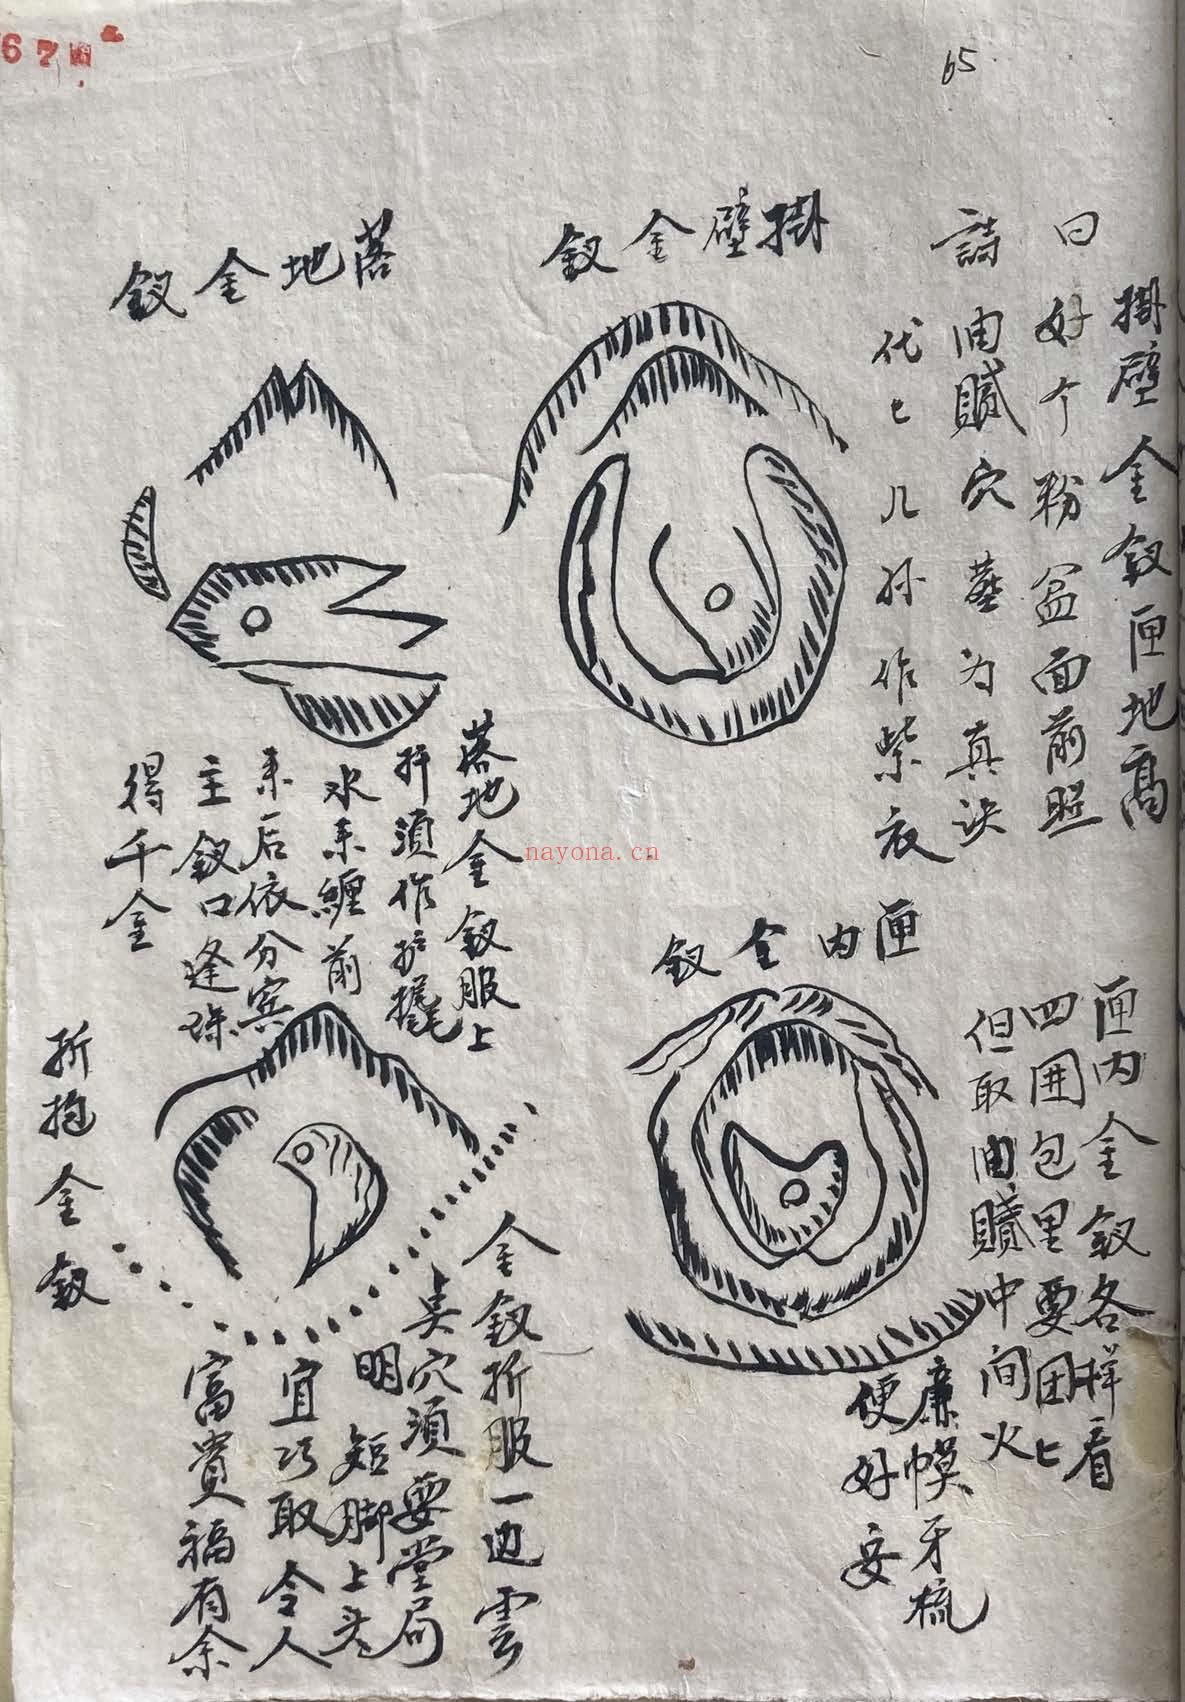 67
65
掛壁金釵
詩曰
掛壁金釵匣地高
好个粉盆面前照
油贓穴葬为真诀
代匕儿孙作紫衣
落地金釵
落地金釵服上
扦須作护攏
水来纏前
来后依分宾
主釵口逢珠
得千金
匣内金釵
匣内金釵各样看
四囲包里要团匕
但取油贓中间火
廉幙牙梳
便好安
折抱金釵
金釵折股一边雲
奌穴須要堂局
明短脚上头
宜巧取令人
富貴福有余
nayona.cn